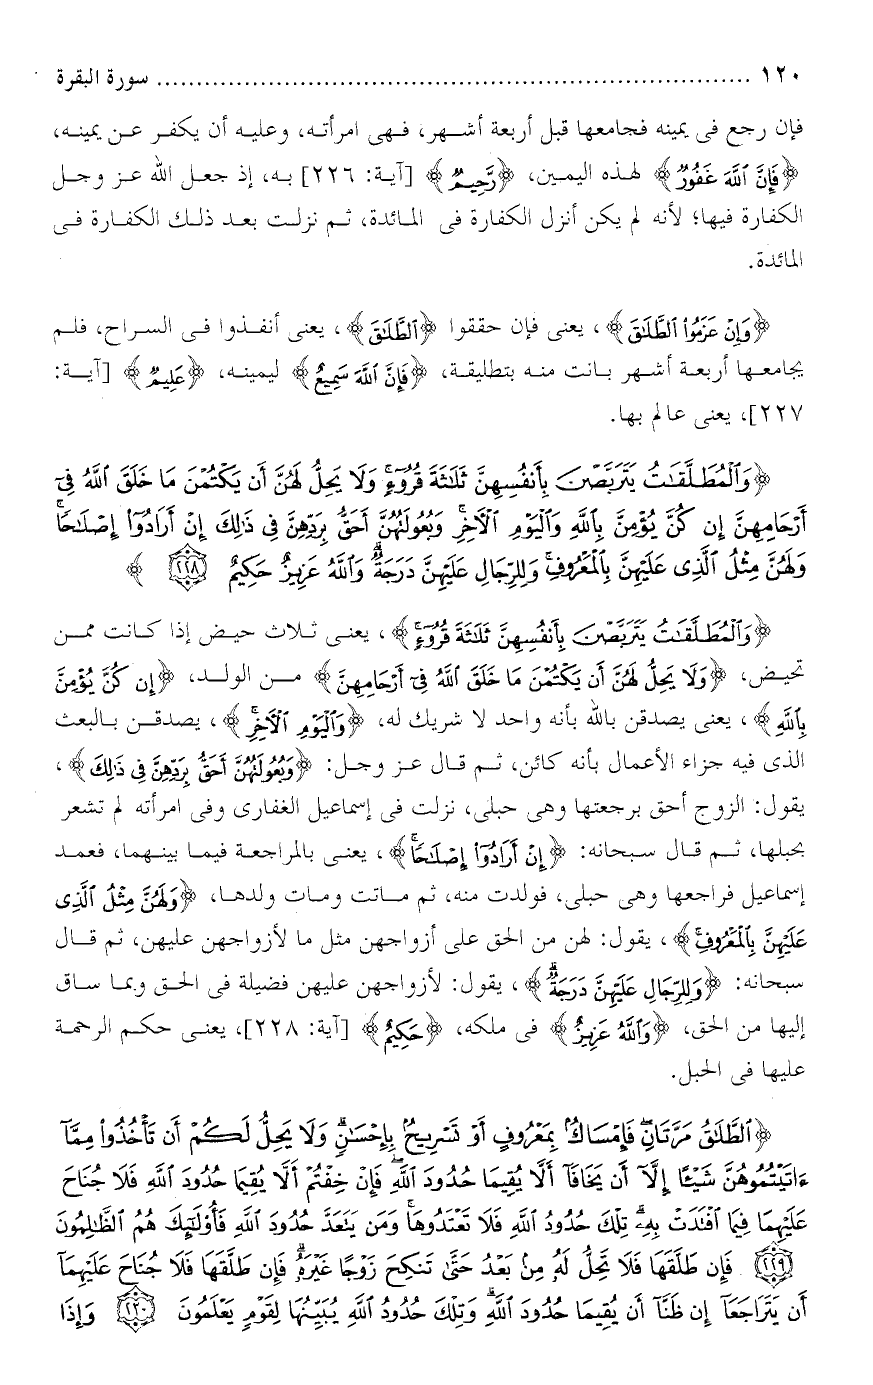 ١٢٠ ........................................................................... سورة البقرة
فإن رجع فى يمينه فجامعها قبل أربعة أشهر، فهى امرأته، وعليه أن يكفر عن يمينه،
﴿فَإِنَّ ٱللَّهَ غَفُورٌ﴾ لهذه اليمين، ﴿رَّحِيمٌ﴾ [آية: ٢٢٦] به، إذ جعل الله عز وجل
الكفارة فيها؛ لأنه لم يكن أنزل الكفارة فى المائدة، ثم نزلت بعد ذلك الكفارة فى
المائدة.
﴿وَإِنْ عَزَمُوا۟ ٱلطَّلَٰقَ﴾، يعنى فإن حققوا ﴿ٱلطَّلَٰقَ﴾، يعنى أنفذوا فى السراح، فلم
يجامعها أربعة أشهر بانت منه بتطليقة، ﴿فَإِنَّ ٱللَّهَ سَمِيعٌ﴾ ليمينه، ﴿عَلِيمٌ﴾ [آية:
٢٢٧]، يعنى عالم بها.
﴿وَٱلْمُطَلَّقَٰتُ يَتَرَبَّصْنَ بِأَنفُسِهِنَّ ثَلَٰثَةَ قُرُوٓءٍ ۚ وَلَا يَحِلُّ لَهُنَّ أَن يَكْتُمْنَ مَا خَلَقَ ٱللَّهُ فِىٓ
أَرْحَامِهِنَّ إِن كُنَّ يُؤْمِنَّ بِٱللَّهِ وَٱلْيَوْمِ ٱلْءَاخِرِ ۚ وَبُعُولَتُهُنَّ أَحَقُّ بِرَدِّهِنَّ فِى ذَٰلِكَ إِنْ أَرَادُوٓا۟ إِصْلَٰحًا ۚ
وَلَهُنَّ مِثْلُ ٱلَّذِى عَلَيْهِنَّ بِٱلْمَعْرُوفِ ۚ وَلِلرِّجَالِ عَلَيْهِنَّ دَرَجَةٌ ۗ وَٱللَّهُ عَزِيزٌ حَكِيمٌ ٢٢٨﴾
﴿وَٱلْمُطَلَّقَٰتُ يَتَرَبَّصْنَ بِأَنفُسِهِنَّ ثَلَٰثَةَ قُرُوٓءٍ ۚ﴾، يعنى ثلاث حيض إذا كانت ممن
تحيض، ﴿وَلَا يَحِلُّ لَهُنَّ أَن يَكْتُمْنَ مَا خَلَقَ ٱللَّهُ فِىٓ أَرْحَامِهِنَّ﴾ من الولد، ﴿إِن كُنَّ يُؤْمِنَّ
بِٱللَّهِ﴾، يعنى يصدقن بالله بأنه واحد لا شريك له، ﴿وَٱلْيَوْمِ ٱلْءَاخِرِ ۚ﴾، يصدقن بالبعث
الذى فيه جزاء الأعمال بأنه كائن، ثم قال عز وجل: ﴿وَبُعُولَتُهُنَّ أَحَقُّ بِرَدِّهِنَّ فِى ذَٰلِكَ﴾،
يقول: الزوج أحق برجعتها وهى حبلى، نزلت فى إسماعيل الغفارى وفى امرأته لم تشعر
بحبلها، ثم قال سبحانه: ﴿إِنْ أَرَادُوٓا۟ إِصْلَٰحًا ۚ﴾، يعنى بالمراجعة فيما بينهما، فعمد
إسماعيل فراجعها وهى حبلى، فولدت منه، ثم ماتت ومات ولدها، ﴿وَلَهُنَّ مِثْلُ ٱلَّذِى
عَلَيْهِنَّ بِٱلْمَعْرُوفِ ۚ﴾، يقول: لهن من الحق على أزواجهن مثل ما لأزواجهن عليهن، ثم قال
سبحانه: ﴿وَلِلرِّجَالِ عَلَيْهِنَّ دَرَجَةٌ ۗ﴾، يقول: لأزواجهن عليهن فضيلة فى الحق وبما ساق
إليها من الحق، ﴿وَٱللَّهُ عَزِيزٌ﴾ فى ملكه، ﴿حَكِيمٌ﴾ [آية: ٢٢٨]، يعنى حكم الرحمة
عليها فى الحبل.
﴿ٱلطَّلَٰقُ مَرَّتَانِ ۖ فَإِمْسَاكٌۢ بِمَعْرُوفٍ أَوْ تَسْرِيحٌۢ بِإِحْسَٰنٍ ۗ وَلَا يَحِلُّ لَكُمْ أَن تَأْخُذُوا۟ مِمَّآ
ءَاتَيْتُمُوهُنَّ شَيْـًٔا إِلَّآ أَن يَخَافَآ أَلَّا يُقِيمَا حُدُودَ ٱللَّهِ ۖ فَإِنْ خِفْتُمْ أَلَّا يُقِيمَا حُدُودَ ٱللَّهِ فَلَا جُنَاحَ
عَلَيْهِمَا فِيمَا ٱفْتَدَتْ بِهِۦ ۗ تِلْكَ حُدُودُ ٱللَّهِ فَلَا تَعْتَدُوهَا ۚ وَمَن يَتَعَدَّ حُدُودَ ٱللَّهِ فَأُو۟لَٰٓئِكَ هُمُ ٱلظَّٰلِمُونَ
٢٢٩ فَإِن طَلَّقَهَا فَلَا تَحِلُّ لَهُۥ مِنۢ بَعْدُ حَتَّىٰ تَنكِحَ زَوْجًا غَيْرَهُۥ ۗ فَإِن طَلَّقَهَا فَلَا جُنَاحَ عَلَيْهِمَآ
أَن يَتَرَاجَعَآ إِن ظَنَّآ أَن يُقِيمَا حُدُودَ ٱللَّهِ ۗ وَتِلْكَ حُدُودُ ٱللَّهِ يُبَيِّنُهَا لِقَوْمٍ يَعْلَمُونَ ٢٣٠ وَإِذَا